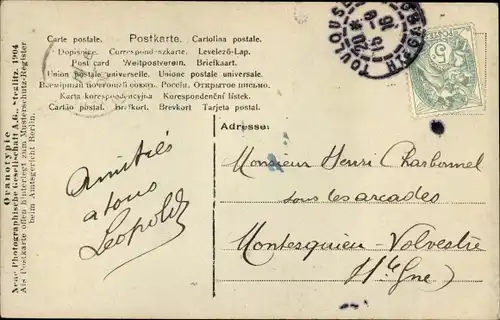 Carte postale. Postkarte. Cartolina postale.
Dopisnice. Correspondenzkarte. Levelező-Lap.
Post card Weltpostverein. Briefkaart.
Union postale universelle. Unione postale universale.
Всемірный почтовый союзъ. Россія. Открытое письмо.
Karta korespondencyjna Korespondenční lístek.
Cartão postal. Brefkort. Brevkort Tarjeta postal.
TOULOUSE
GARE
20
15-9
16
5
POSTES
Adresse:
Amitiés
a tous
Leopold
Monsieur Henri Charbonnel
sous les arcades
Montesquieu-Volvestre
Hte Gne)
Oranotypie
Neue Photographische Gesellschaft A.G., Steglitz. 1904
Als Postkarte offen hinterlegt zum Musterschutz-Register
beim Amtsgericht Berlin.